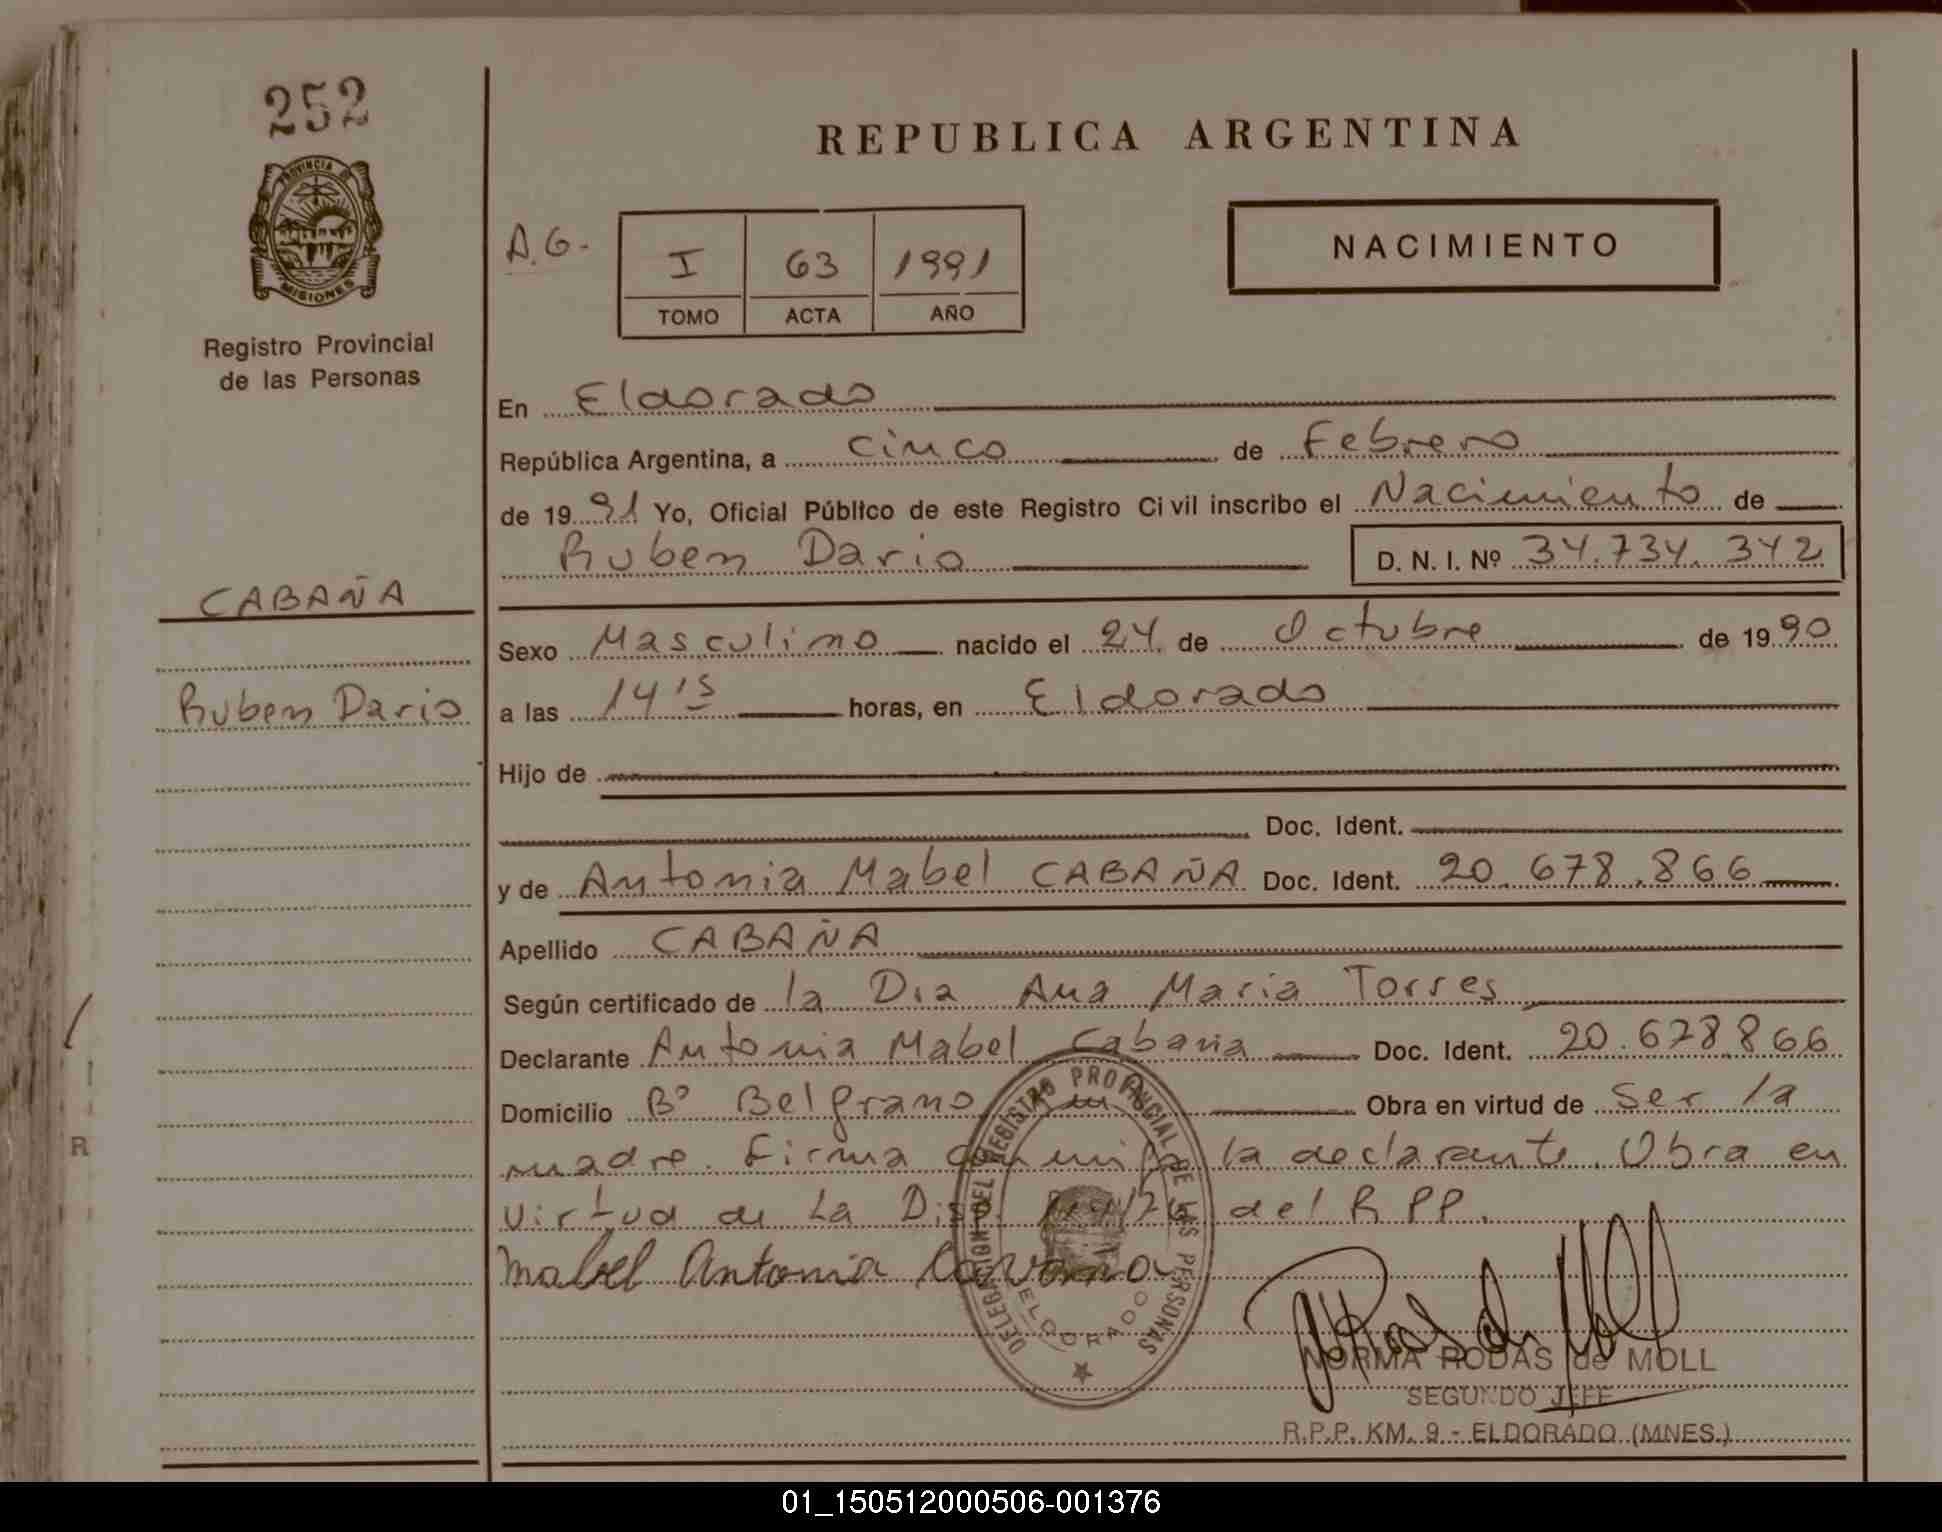 252
PROVINCIA D
MISIONES
Registro Provincial
de las Personas
REPUBLICA ARGENTINA
A.G.-
I 63 1991
TOMO ACTA AÑO
NACIMIENTO
En Eldorado
República Argentina, a cinco de Febrero
de 1991 Yo, Oficial Público de este Registro Civil inscribo el Nacimiento de
Ruben Dario D. N. I. Nº 34.734.342
CABAÑA
Sexo Masculino nacido el 24 de Octubre de 1990
Ruben Dario
a las 14'15 horas, en Eldorado
Hijo de
Doc. Ident.
y de Antonia Mabel CABAÑA Doc. Ident. 20.678.866
Apellido CABAÑA
Según certificado de la Dra Ana Maria Torres
Declarante Antonia Mabel Cabaña Doc. Ident. 20.678.866
Domicilio Bº Belgrano Obra en virtud de ser la
madre. Firma la declarante. Obra en
virtud de La Disp. del R P P.
Mabel Antonia Cavana
DELEGACION DEL REGISTRO PROVINCIAL DE LAS PERSONAS
ELDORADO
NORMA RODAS de MOLL
SEGUNDO JEFE
R.P.P. KM. 9 - ELDORADO (MNES.)
R
01_150512000506-001376